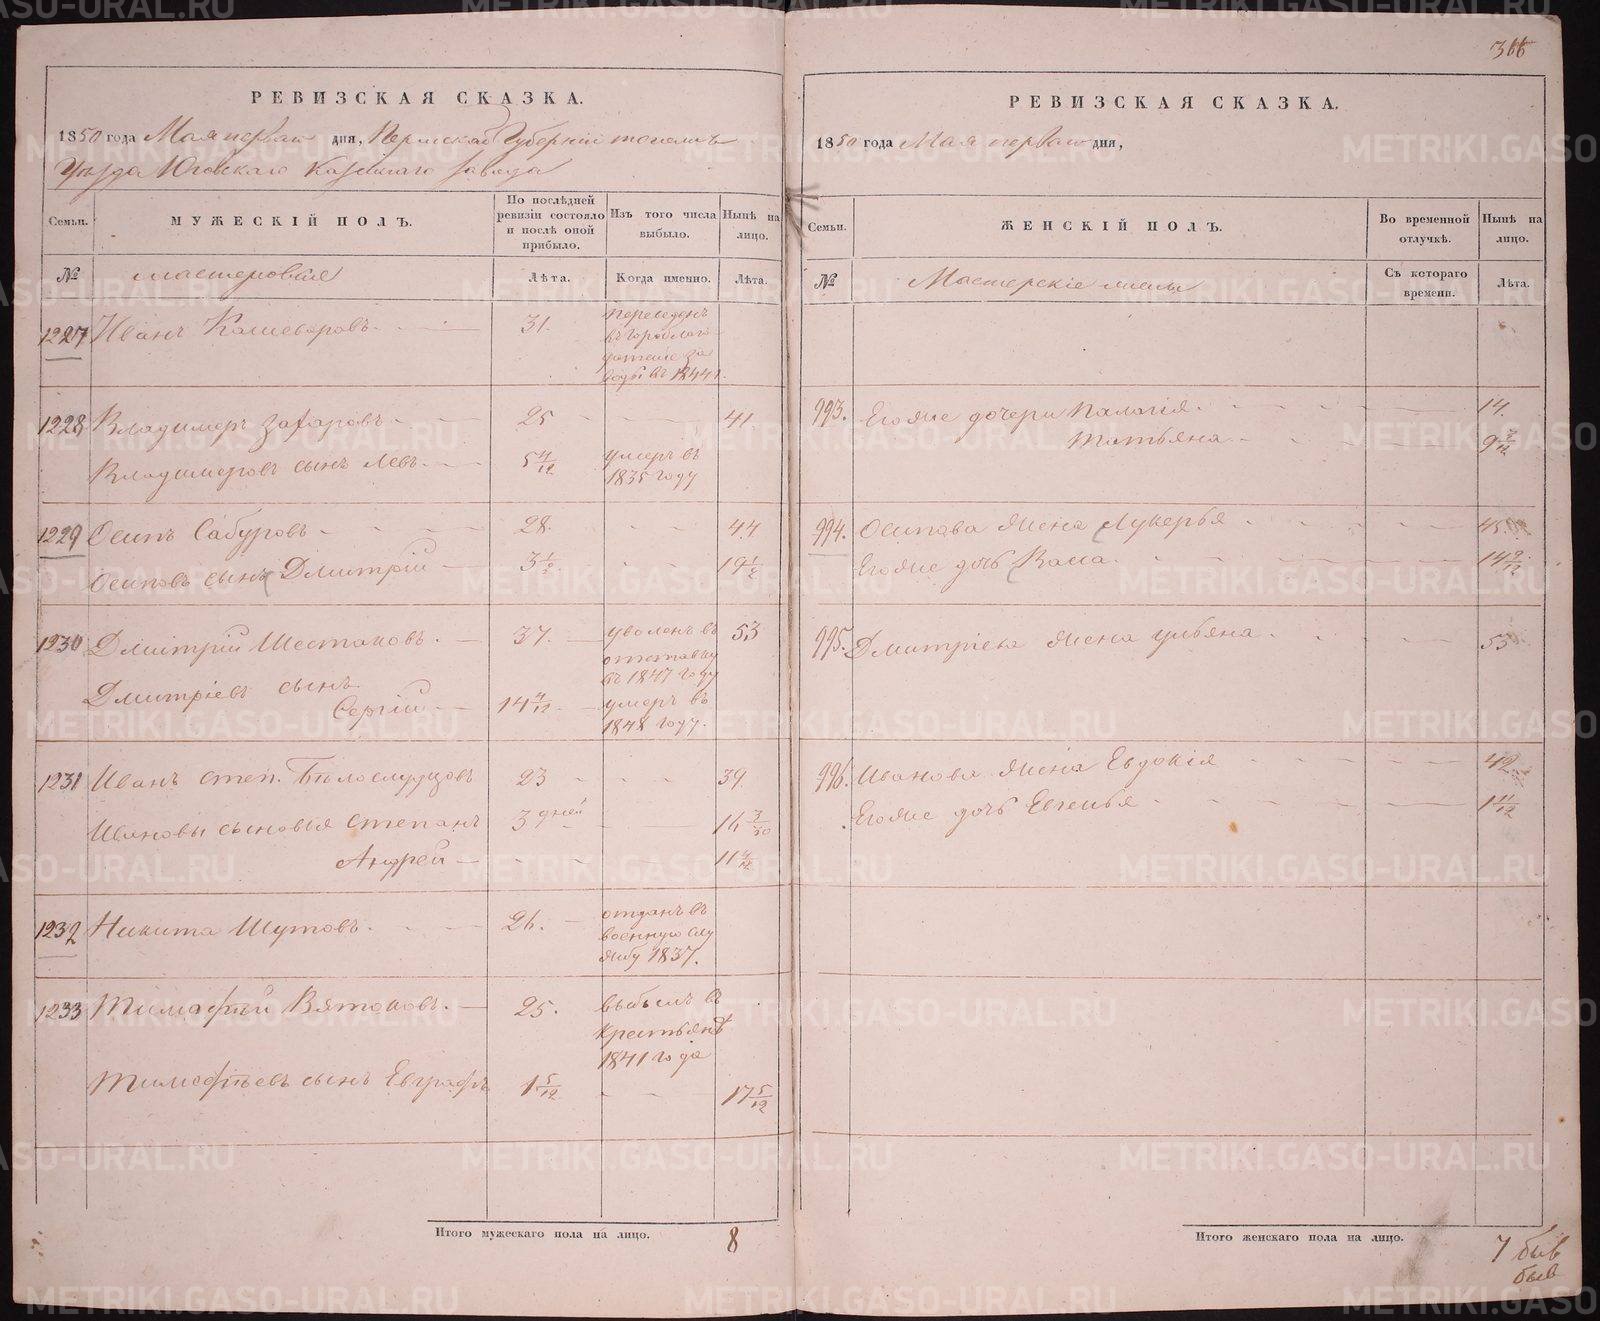 366
РЕВИЗСКАЯ СКАЗКА.
1850 года Мая первого дня, Пермской Губернии тогожъ
Уѣзда Юговскаго Казеннаго завода
Семьи. МУЖЕСКІЙ ПОЛЪ. По послѣдней ревизіи состояло и послѣ оной прибыло. Изъ того числа выбыло. Нынѣ на лицо.
№ мастеровые Лѣта. Когда именно. Лѣта.
1227 Иванъ Кашеваровъ 31. переведенъ
въ Гороблаго-
датские за
воды въ 1844 г.
1228 Владимеръ Захаровъ 25 41.
Владимеровъ сынъ Левъ 5 4/12 умеръ въ
1835 году
1229 Осипъ Сабуровъ 28. 44
Осиповъ сынъ Дмитрій 3 1/2 19 1/2
1230 Дмитрій Шестаковъ. 37. уволенъ въ 53
отставку
въ 1847 году
Дмитріевъ сынъ
Сергій 14 4/12 умеръ въ
1848 году.
1231 Иванъ Степ. Бѣлослудцовъ 23 39.
Ивановы сыновья Степанъ 3 дней 16 3/30
Андрей 11 4/12
1232 Никита Шутовъ. 26. отданъ въ
военную слу
жбу 1837.
1233 Тимофѣй Вятковъ. 25. выбылъ въ
крестьянѣ
1841 года
Тимофѣевъ сынъ Евграфъ 1 5/12 17 5/12
Итого мужескаго пола на лицо. 8
РЕВИЗСКАЯ СКАЗКА.
1850 года Мая первого дня,
Семьи. ЖЕНСКІЙ ПОЛЪ. Во временной отлучкѣ. Нынѣ на лицо.
№ Мастерскіе жены Съ котораго времени. Лѣта.
993. Егоже дочери Палагія 14.
Татьяна 9 7/12
994. Осипова жена Лукерья 45.
Егоже дочь Васса 14 9/12
995. Дмитріева жена Ульяна 53
996. Иванова жена Евдокія 42
Егоже дочь Евгенья 1 11/12
Итого женскаго пола на лицо. 7
METRIKI.GASO-URAL.RU